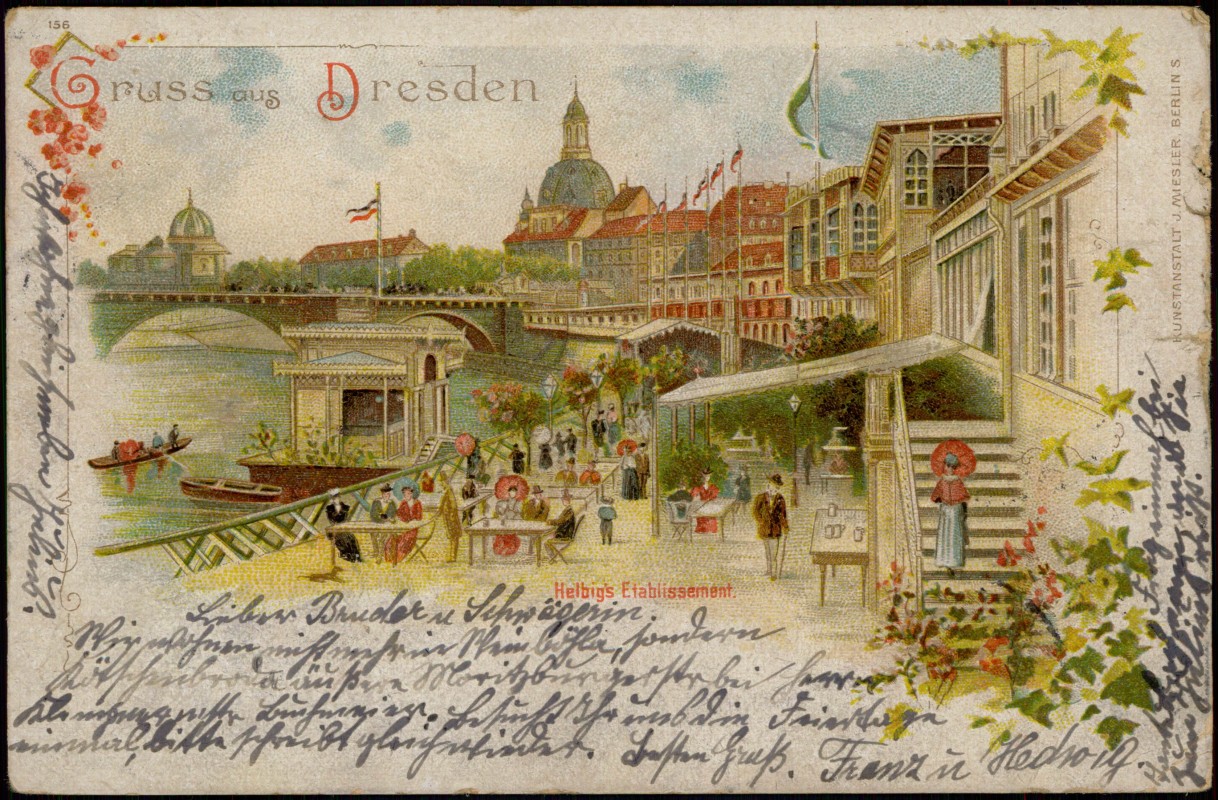 156
Gruss aus Dresden
KUNSTANSTALT J. MIESLER. BERLIN S.
Helbig's Etablissement.
Lieber Bruder u Schwägerin
Wir wohnen nicht mehr in Weinböhla, sondern
Kötschenbroda äußere Moritzburgerstr bei Herrn
Klempnermstr Buchmeier. Besucht Ihr uns die Feiertage
einmal, bitte schreibt gleich wieder. besten Gruß. Franz u Hedwig.